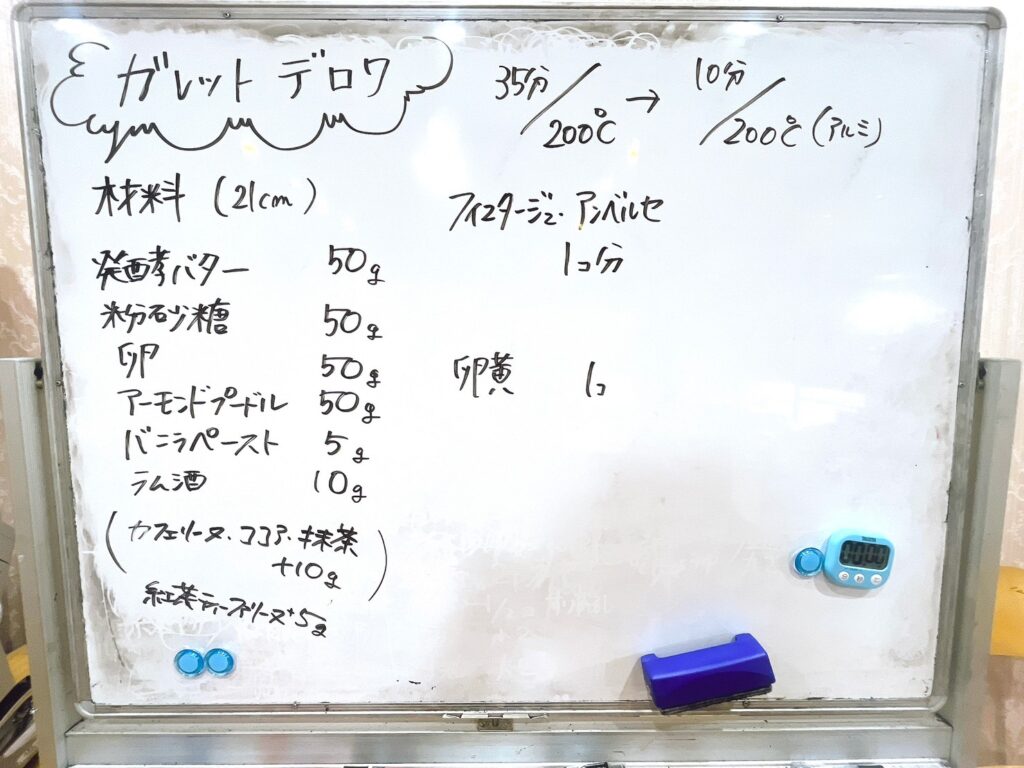 ガレット デ ロワ
35分/200℃ → 10分/200℃ (アルミ)
材料 (21cm)
発酵バター 50g
粉砂糖 50g
卵 50g
アーモンドプードル 50g
バニラペースト 5g
ラム酒 10g
(カフェリーヌ・ココア・抹茶
+10g)
紅茶ティーフリーヌ+5g
フィユタージュ・アンベルセ
1コ分
卵黄 1コ
00:00